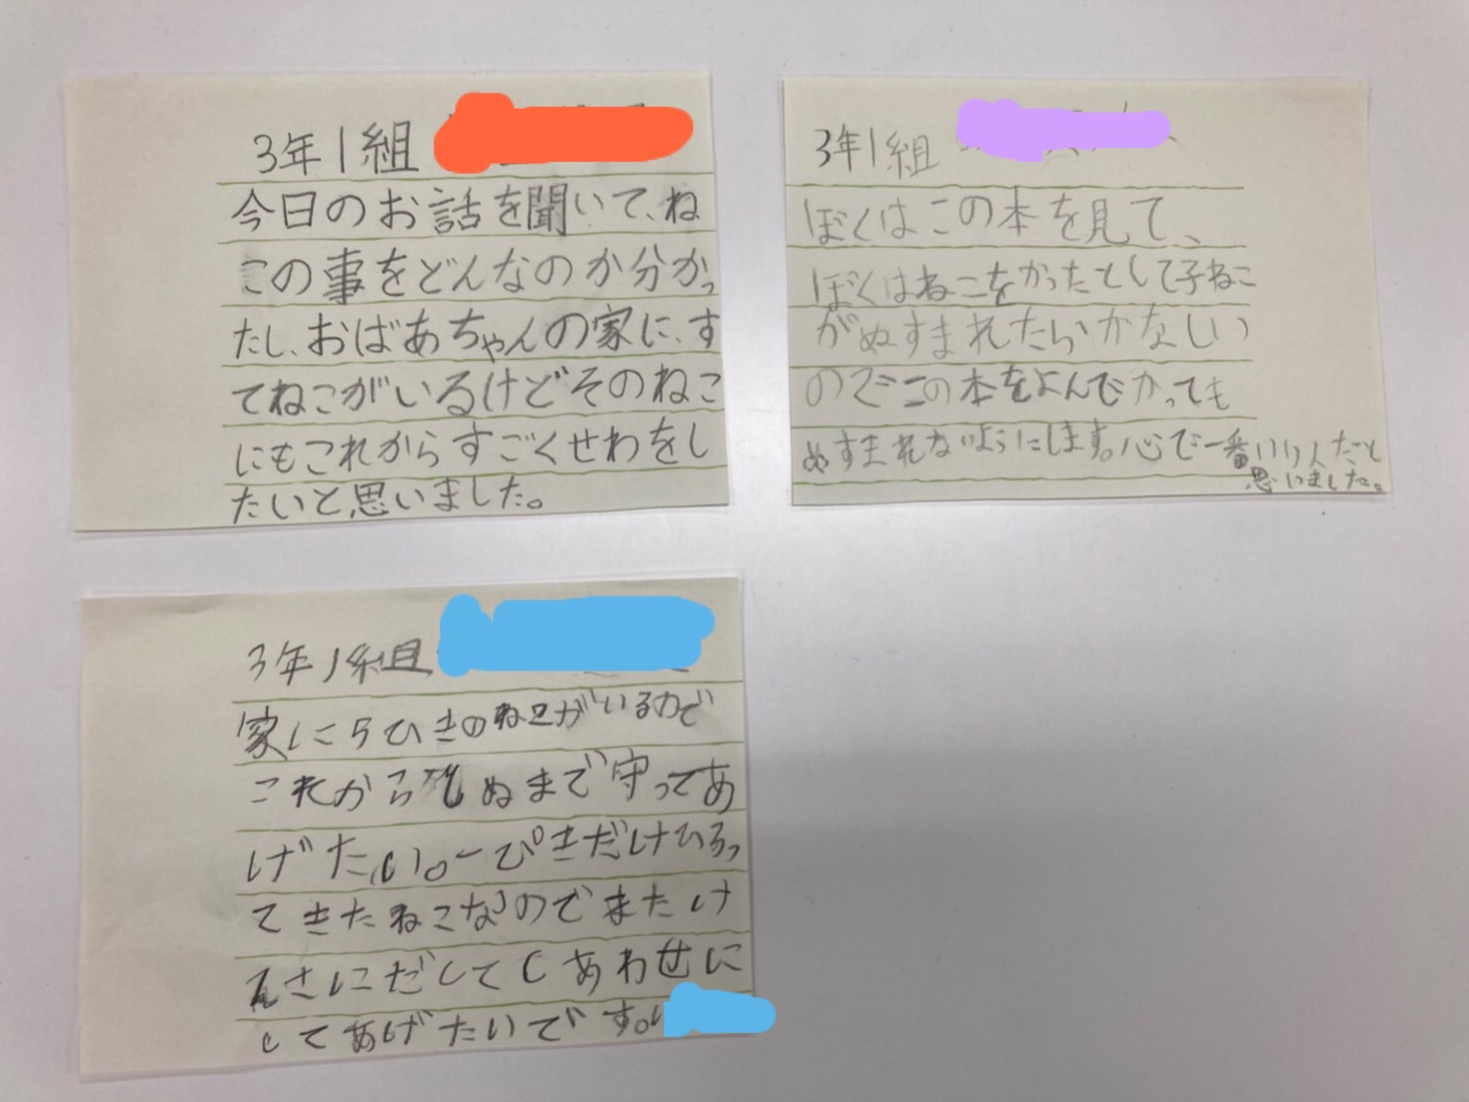 3年1組
今日のお話を聞いて、ね
この事をどんなのか分かっ
たし、おばあちゃんの家に、す
てねこがいるけどそのねこ
にもこれからすごくせわをし
たいと思いました。
3年1組
ぼくはこの本を見て、
ぼくはねこをかったとして子ねこ
がぬすまれたらかなしい
のでこの本をよんでかっても
ぬすまれないようにします。心で一番いい人だと
思いました。
3年1組
家に5ひきのねこがいるので
これからしぬまで守ってあ
げたい。一ぴきだけひろっ
てきたねこなのでまたけ
さにだしてしあわせに
してあげたいです。